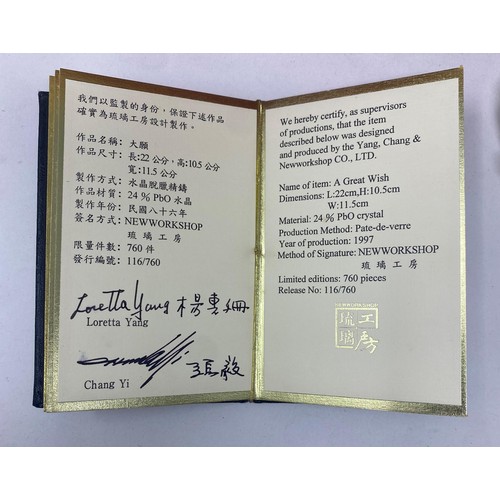 我們以監製的身份，保證下述作品
確實為琉璃工房設計製作。
作品名稱：大願
作品尺寸：長：22公分，高：10.5公分
寬：11.5公分
製作方式：水晶脫臘精鑄
作品材質：24% PbO 水晶
製作年份：民國八十六年
簽名方式：NEWWORKSHOP
琉璃工房
限量件數：760 件
發行編號：116/760
Loretta Yang 楊惠姍
Loretta Yang
張毅
Chang Yi
We hereby certify, as supervisors
of productions, that the item
described below was designed
and produced by the Yang, Chang &
Newworkshop CO., LTD.
Name of item: A Great Wish
Dimensions: L:22cm,H:10.5cm
W:11.5cm
Material: 24% PbO crystal
Production Method: Pate-de-verre
Year of production: 1997
Method of Signature: NEWWORKSHOP
琉璃工房
Limited editions: 760 pieces
Release No: 116/760
NEWWORKSHOP
琉璃工房